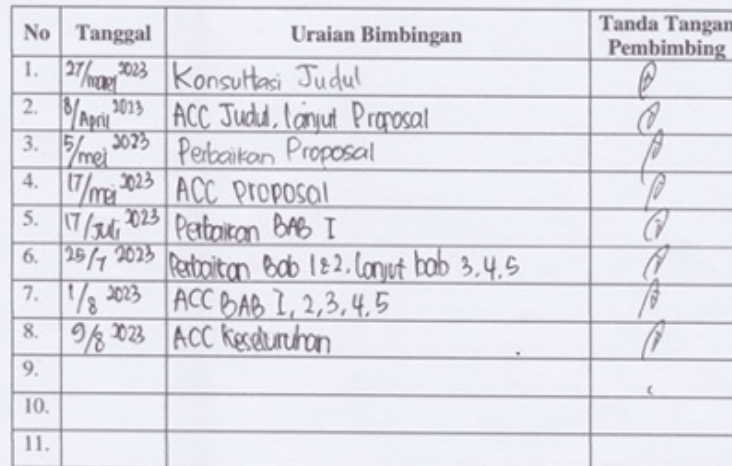 No Tanggal Uraian Bimbingan Tanda Tangan Pembimbing
1. 27/maret 2023 Konsultasi Judul
2. 8/April 2023 ACC Judul, lanjut Proposal
3. 5/mei 2023 Perbaikan Proposal
4. 17/mei 2023 ACC Proposal
5. 17/Juli 2023 Perbaikan BAB I
6. 25/7 2023 Perbaikan Bab 1&2, lanjut bab 3,4,5
7. 1/8 2023 ACC BAB I, 2, 3, 4, 5
8. 9/8 2023 ACC Keseluruhan
9.
10.
11.